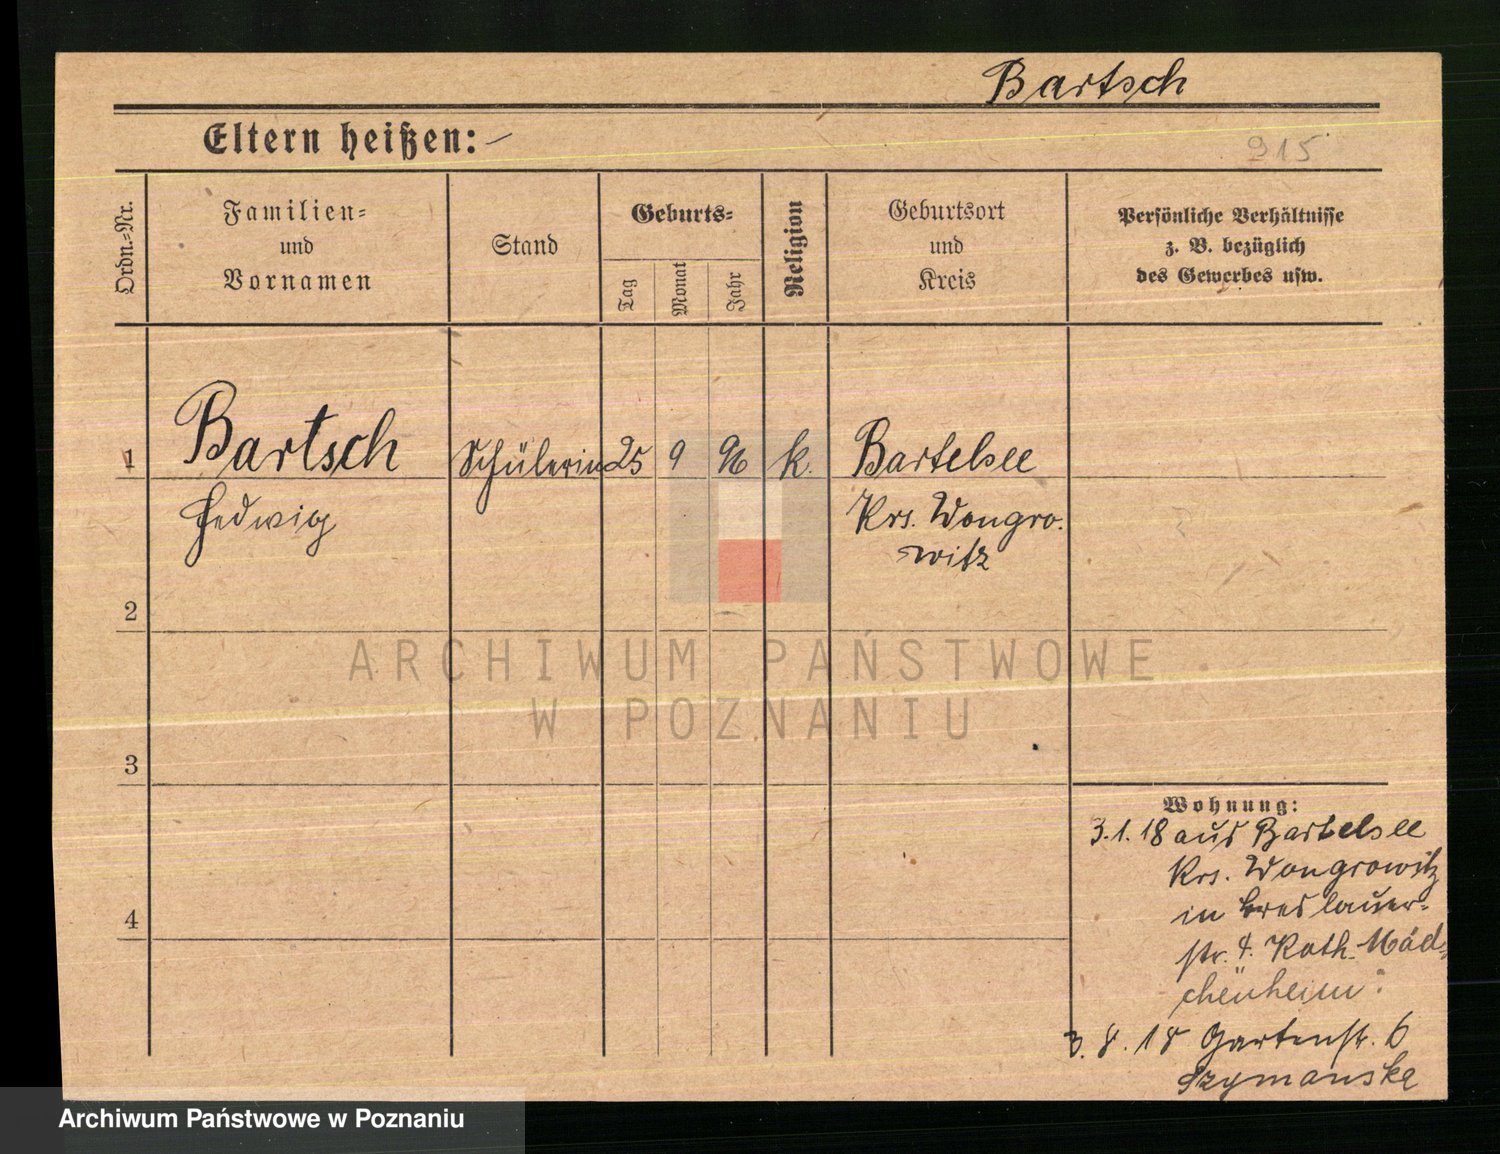 Bartsch
Eltern heißen: –
915
Ordn.-Nr.
Familien-
und
Vornamen
Stand
Geburts-
Tag
Monat
Jahr
Religion
Geburtsort
und
Kreis
Persönliche Verhältnisse
z. B. bezüglich
des Gewerbes usw.
1 Bartsch Schülerin 25 9 96 k. Bartelsee
Hedwig Krs. Wongro.
witz
2
ARCHIWUM PAŃSTWOWE
W POZNANIU
3
Wohnung:
3.1.18 aus Bartelsee
Krs. Wongrowitz
in Breslauer-
4
str. Kath. Mäd-
chenheim.
3.8.18 Gartenstr. 6
Szymanska
Archiwum Państwowe w Poznaniu